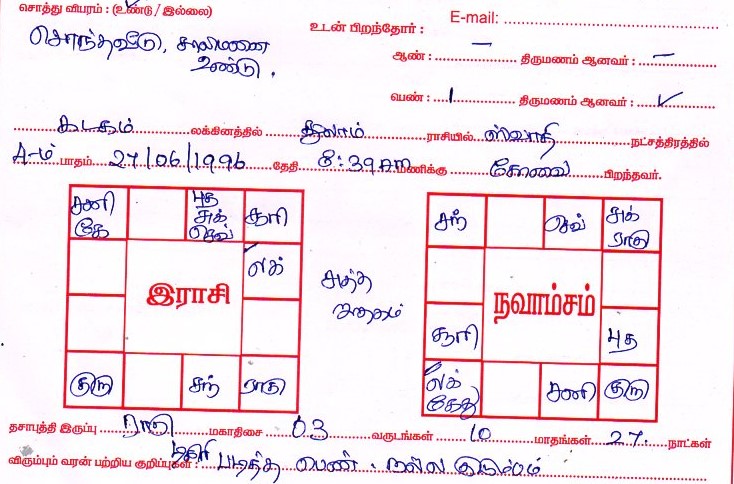 சொத்து விபரம் : (உண்டு / இல்லை)
சொந்தவீடு, காலிமணை
உண்டு.
உடன் பிறந்தோர் :
E-mail:
ஆண் : — திருமணம் ஆனவர் : —
பெண் : 1 திருமணம் ஆனவர் : ✓
கடகம் லக்கினத்தில் துலாம் ராசியில் ஸ்வாதி நட்சத்திரத்தில்
4-ம் பாதம் 27/06/1996 தேதி 8:39 AM மணிக்கு கோவை பிறந்தவர்.
சனி கே
புத சுக் செவ்
சூரி
லக்
இராசி
குரு
சந்
ராகு
சுத்த ஜாதகம்
சந்
செவ்
சுக் ராகு
நவாம்சம்
சூரி
புத
லக் கேது
சனி
குரு
தசாபுத்தி இருப்பு ராகு மகாதிசை 03 வருடங்கள் 10 மாதங்கள் 27 நாட்கள்
விரும்பும் வரன் பற்றிய குறிப்புகள் : படித்த பெண். நல்ல குடும்பம்